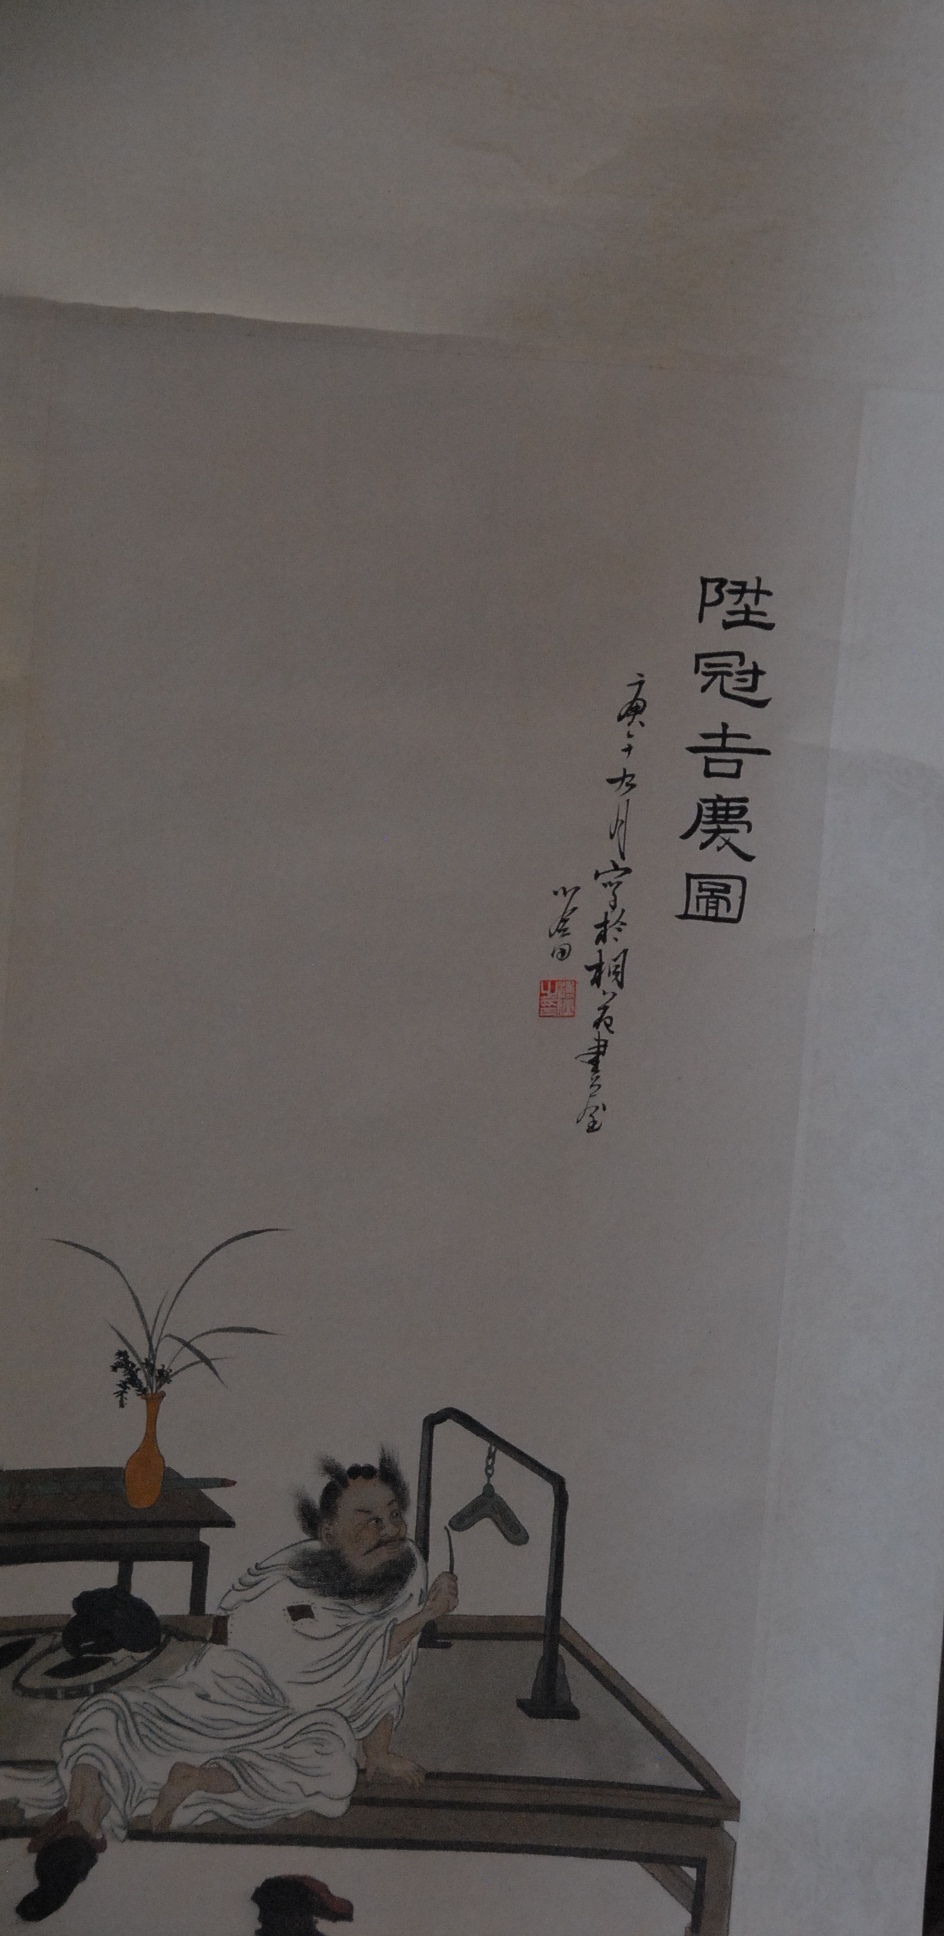 陞冠吉慶圖
庚午九月寫於桐花書屋